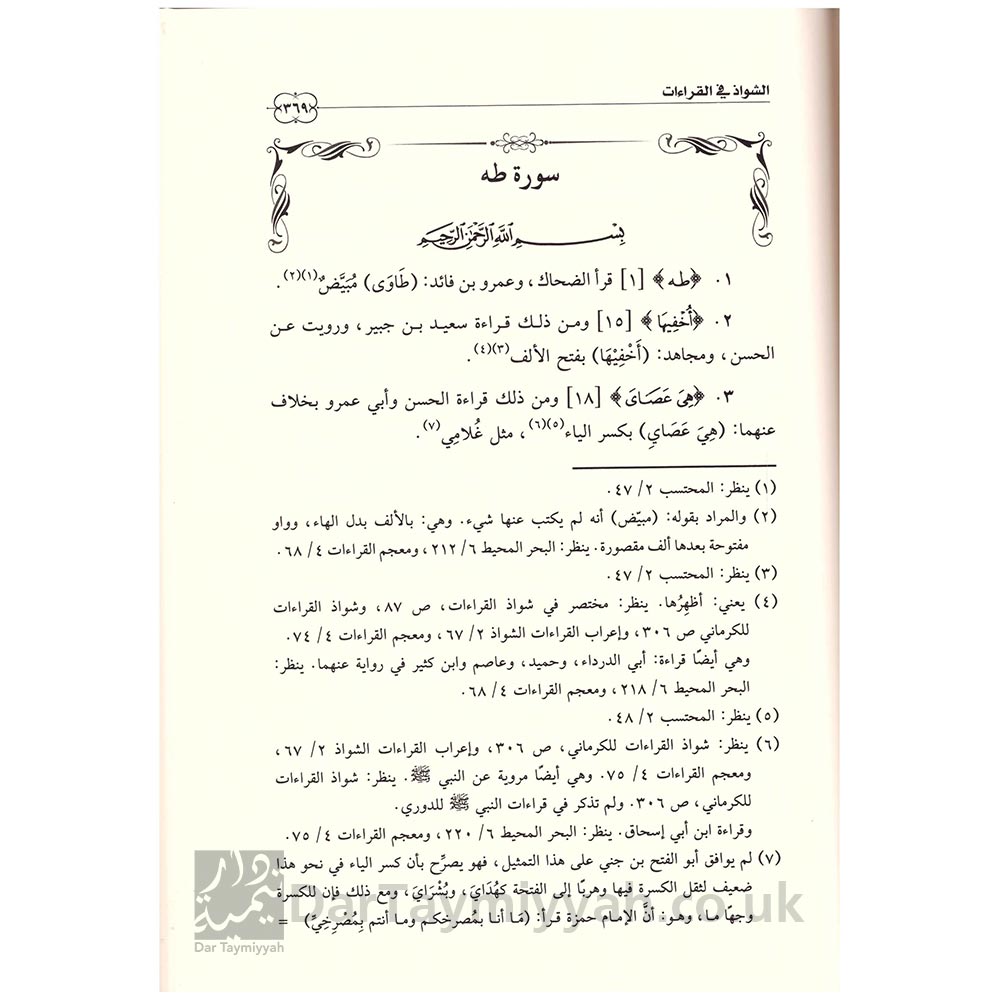 الشواذ في القراءات
٣٦٩
سورة طه
بِسْمِ اللَّهِ الرَّحْمَٰنِ الرَّحِيمِ
٠١ ﴿طه﴾ [١] قرأ الضحاك، وعمرو بن فائد: (طَاوَى) مُبَيَّضٌ(١)(٢).
٠٢ ﴿أُخْفِيهَا﴾ [١٥] ومن ذلك قراءة سعيد بن جبير، ورويت عن
الحسن، ومجاهد: (أَخْفِيْهَا) بفتح الألف(٣)(٤).
٠٣ ﴿هِيَ عَصَايَ﴾ [١٨] ومن ذلك قراءة الحسن وأبي عمرو بخلاف
عنهما: (هِيَ عَصَايِ) بكسر الياء(٥)(٦)، مثل غُلامِي(٧).
(١) ينظر: المحتسب ٢/ ٤٧.
(٢) والمراد بقوله: (مبيّض) أنه لم يكتب عنها شيء. وهي: بالألف بدل الهاء، وواو
مفتوحة بعدها ألف مقصورة. ينظر: البحر المحيط ٦/ ٢١٢، ومعجم القراءات ٤/ ٦٨.
(٣) ينظر: المحتسب ٢/ ٤٧.
(٤) يعني: أظهِرُها. ينظر: مختصر في شواذ القراءات، ص ٨٧، وشواذ القراءات
للكرماني ص ٣٠٦، وإعراب القراءات الشواذ ٢/ ٦٧، ومعجم القراءات ٤/ ٧٤.
وهي أيضًا قراءة: أبي الدرداء، وحميد، وعاصم وابن كثير في رواية عنهما. ينظر:
البحر المحيط ٦/ ٢١٨، ومعجم القراءات ٤/ ٦٨.
(٥) ينظر: المحتسب ٢/ ٤٨.
(٦) ينظر: شواذ القراءات للكرماني، ص ٣٠٦، وإعراب القراءات الشواذ ٢/ ٦٧،
ومعجم القراءات ٤/ ٧٥. وهي أيضًا مروية عن النبي ﷺ. ينظر: شواذ القراءات
للكرماني، ص ٣٠٦. ولم تذكر في قراءات النبي ﷺ للدوري.
وقراءة ابن أبي إسحاق. ينظر: البحر المحيط ٦/ ٢٢٠، ومعجم القراءات ٤/ ٧٥.
(٧) لم يوافق أبو الفتح بن جني على هذا التمثيل، فهو يصرِّح بأن كسر الياء في نحو هذا
ضعيف لثقل الكسرة فيها وهربًا إلى الفتحة كهُدَايَ، وبُشْرَايَ، ومع ذلك فإن للكسرة
وجهًا ما، وهو: أنَّ الإمام حمزة قرأ: (مَا أنا بمُصرخكم وما أنتم بِمُصْرِخِيِّ) =
دار تيمية
Dar Taymiyyah
DarTaymiyyah.co.uk